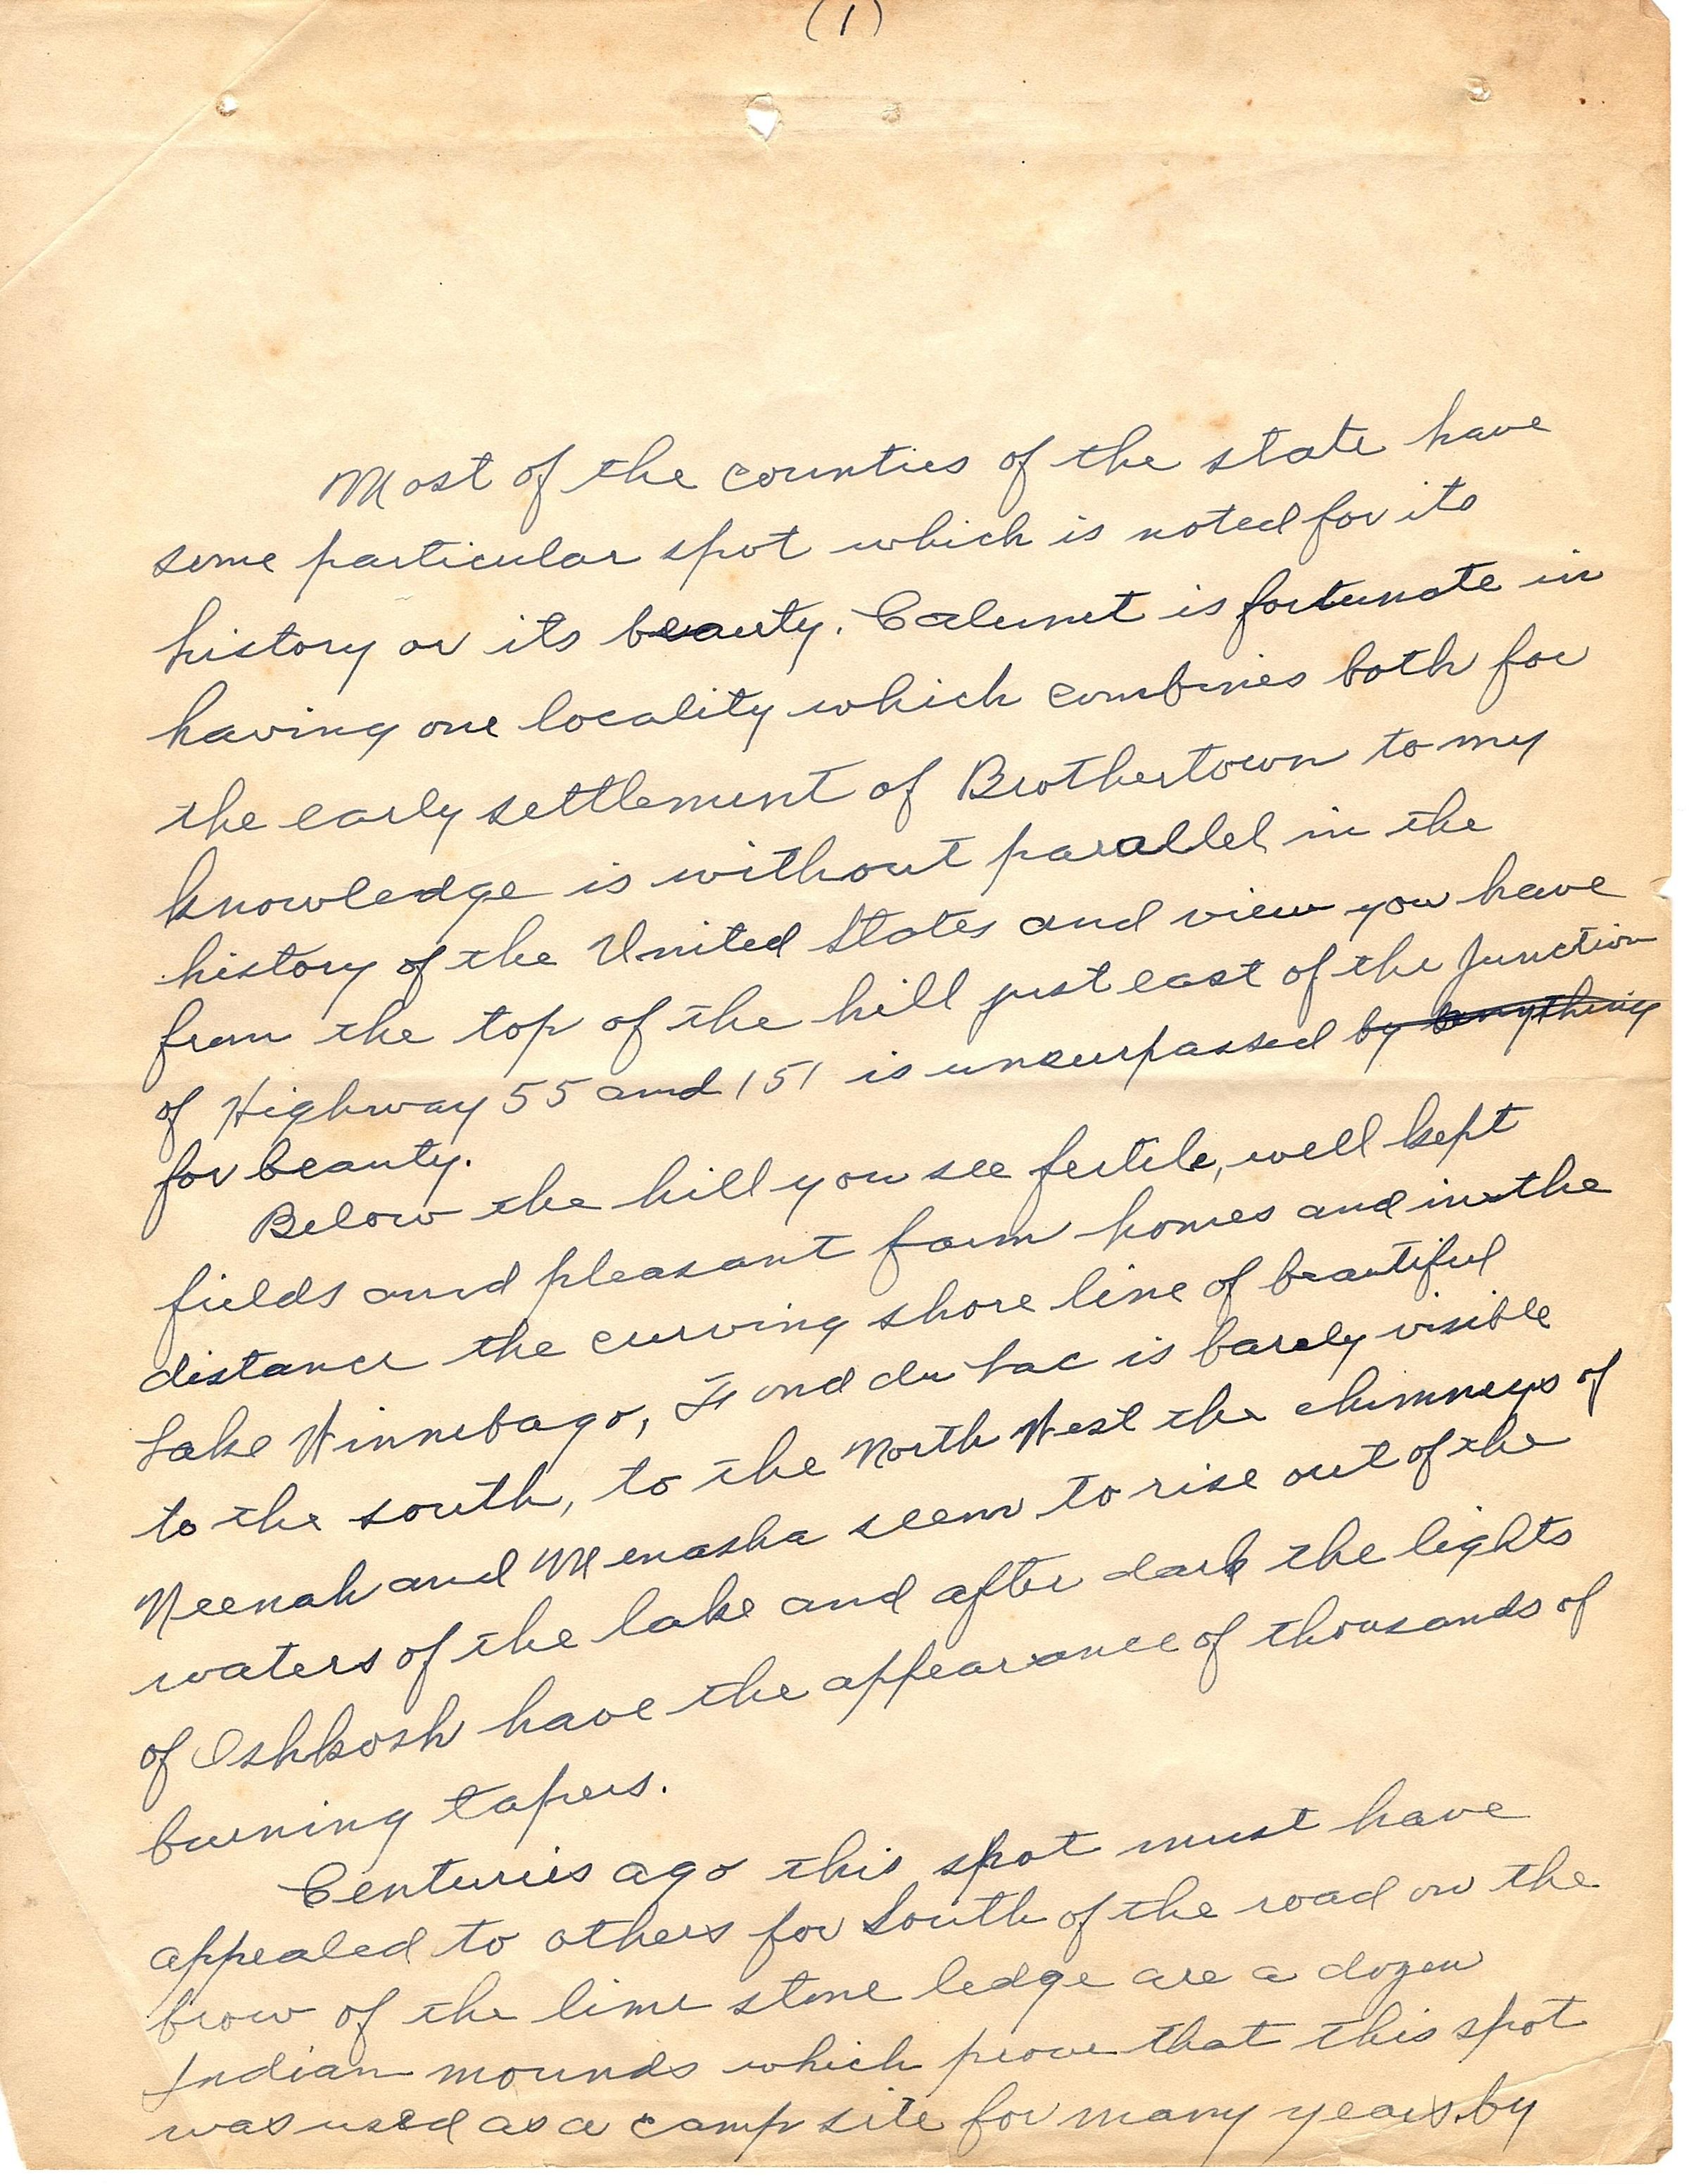 (1)
Most of the counties of the state have
some particular spot which is noted for its
history or its beauty. Calumet is fortunate in
having one locality which combines both for
the early settlement of Brothertown to my
knowledge is without parallel in the
history of the United States and view you have
from the top of the hill just east of the Junction
of Highway 55 and 151 is unsurpassed by anything
for beauty.
Below the hill you see fertile, well kept
fields and pleasant farm homes and in the
distance the curving shore line of beautiful
Lake Winnebago, Fond du Lac is barely visible
to the south, to the North West the chimneys of
Neenah and Menasha seem to rise out of the
waters of the lake and after dark the lights
of Oshkosh have the appearance of thousands of
burning tapers.
Centuries ago this spot must have
appealed to others for South of the road on the
brow of the lime stone ledge are a dozen
Indian mounds which prove that this spot
was used as a camp site for many years by